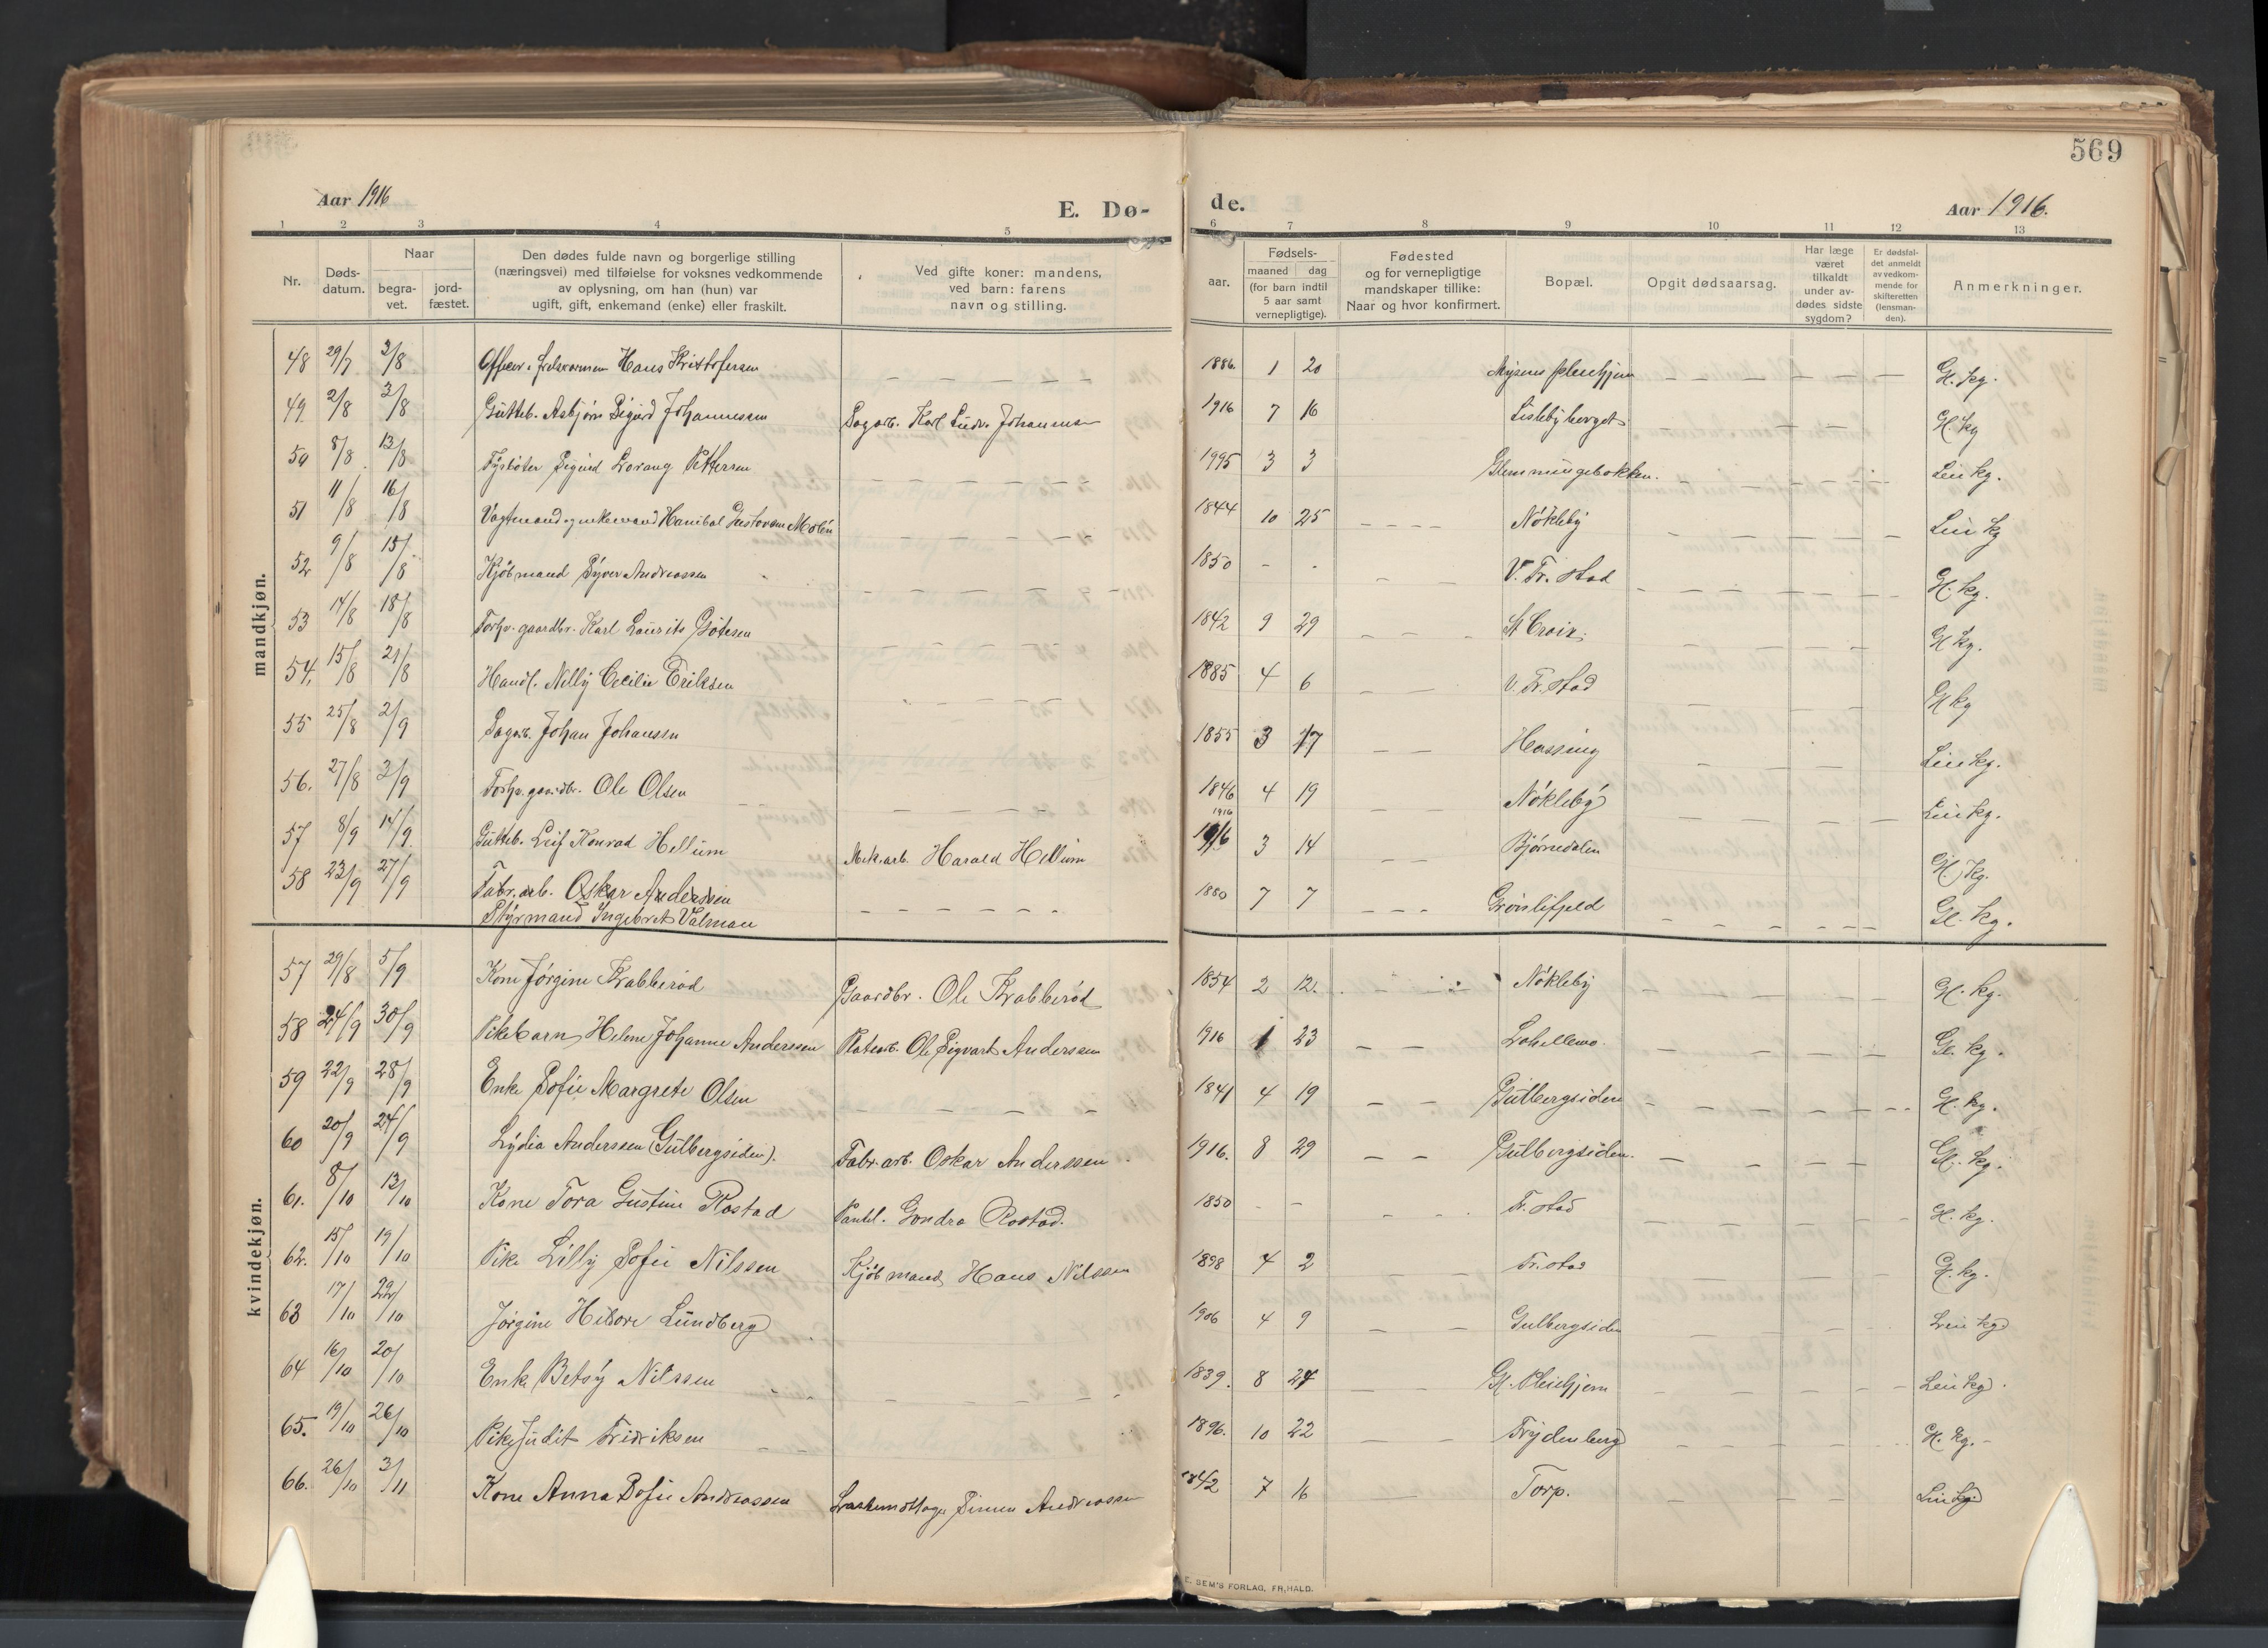 569
Aar 1916
E. Dø-
de.
Aar 1916.
1 2 3 4 5 6 7 8 9 10 11 12 13
Nr.
Døds-
datum.
Naar
begra-
vet.
jord-
fæstet.
Den dødes fulde navn og borgerlige stilling
(næringsvei) med tilføielse for voksnes vedkommende
av oplysning, om han (hun) var
ugift, gift, enkemand (enke) eller fraskilt.
Ved gifte koner: mandens,
ved barn: farens
navn og stilling.
aar.
Fødsels-
maaned dag
(for barn indtil
5 aar samt
vernepligtige).
Fødested
og for vernepligtige
mandskaper tillike:
Naar og hvor konfirmert.
Bopæl.
Opgit dødsaarsag.
Har læge
været
tilkaldt
under av-
dødes sidste
sygdom?
Er dødsfal-
det anmeldt
av vedkom-
mende for
skifteretten
(lensman-
den).
Anmerkninger.
mandkjøn.
48 29/7 2/8 Officer i frelsesarmeen Hans Kristofersen — — — — — 1886. 1 20 Mysens pleiehjem — — — — — Gl. kg.
49. 2/8 3/8 Gutteb. Asbjørn Sigurd Johannessen Sagarb. Karl Ludv. Johannessen 1916 7 16 Lislebyberget — — — — Gl. kg
50 8/8 13/8 Fyrbøter Sigurd Lorang Pettersen — — — — — — 1995 3 3 Glemmingebakken. — — — — Lein kg.
51 11/8 16/8 Vagtmand og enkemand Hanibal Gustavsen Molén 1844 10 25 — — — — Nøkleby — — — — — Lein kg
52 9/8 15/8 Kjøbmand Syver Andreassen — — — — — — 1850 - - — — V. Fr.stad — — — — — Gl. kg.
53 14/8 18/8 Forhv. gaardbr. Karl Laurits Gøtesen — — — — — 1842 9 29 — — - St Croix. — — — — Gl kg.
54. 15/8 21/8 Handl. Nelly Cecilie Eriksen — — — — 1885 4 6 — — V. Fr.stad — — — — Gl kg
55 25/8 2/9 Sagarb. Johan Johansen 1855 3 17 — — Hassing — — — — Lein kg.
56. 27/8 3/9 Forhv. gaardbr. Ole Olsen — — — — — 1846 4 19 — — Nøkleby — — — — — Lein kg.
57 8/9 14/9. Gutteb. Leif Konrad Hellum Mek. arb. Harald Hellum 1916 1916 3 14 — — Bjørnedalen Gl. kg.
58 23/9 27/9 Fabr. arb. Oskar Anderssen
Styrmand Ingebret Valman — — — — — - 1880 7 7 — — — Grønlifjeld — — — — — — Gl. kg.
kvindekjøn.
57 29/8 5/9 Kone Jørgine Krabberød Gaardbr. Ole Krabberød 1854 2 12. Nøkleby — — — — — Gl. kg.
58 24/9 30/9 Pikebarn Helene Johanne Anderssen Platearb. Ole Sigvart Anderssen 1916 1 23 — — — — — — Gl. kg.
59 22/9 28/9 Enke Sofie Margrete Olsen — — — — — 1841 4 19 — — Gulbergsiden — — — — — Gl. kg.
60 20/9 24/9 Lydia Anderssen (Gulbergsiden). Fabr. arb. Oskar Anderssen 1916. 8 29 — — Gulbergsiden. — — — — Gl. kg.
61. 8/10 13/10 Kone Tora Gustine Rostad Rostad. 1850 - - - - Fr.stad — — — — — Gl. kg.
62. 15/10 19/10 Pike Lilly Sofie Nilssen Kjøbmand Hans Nilssen 1898 4 2 — — Fr.stad — — — — Gl. kg.
63 17/10 22/10 Jørgine Lundberg 1906 4 9 — — Gulbergsiden — — — — Lein kg
64 16/10 20/10 Enke Betsy Nilssen — — — — 1839. 8 27 — — Gl. Pleiehjem — — — — — Lein kg.
65. 19/10 26/10 Pike Judit Fridriksen 1896. 10 22 — — Frydenberg — — — — Gl. kg.
66. 26/10 3/11 Kone Anna Sofie Andreassen Simen Andreassen 1842 7 16 — — Torp. — — — — Lein kg
E. SEM'S FORLAG, FR.HALD.